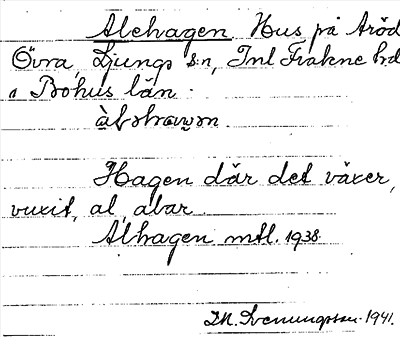 Alehagen Hus på Aröd
Övra, Ljungs sn, Inl Fräkne hd
Bohus län.
Hagen där det växer,
vuxit, al, alar
Alhagen mtl. 1938.
Svenungsson 1941.